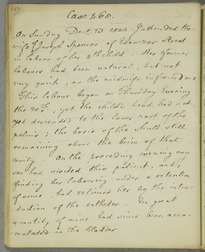 117
Case 460.
On Sunday Decr. 23 1800 I attended the
wife of Joseph Spencer of Edward Street
in labour of her 4th child. Her former
labours had been natural, but not
very quick, as the midwife informed me
This labour began on Thursday Evening
the 20th, yet the child's head had not
yet descended to the lower part of the
pelvis; the basis of the skull still
remaining above the brim of that
cavity. On the preceding evening my
son had visited this patient, and
finding her labouring under a retention
of urine, had relieved her by the intro
duction of the catheter. In great
quantity of urine had since been accu
mulated in the bladder